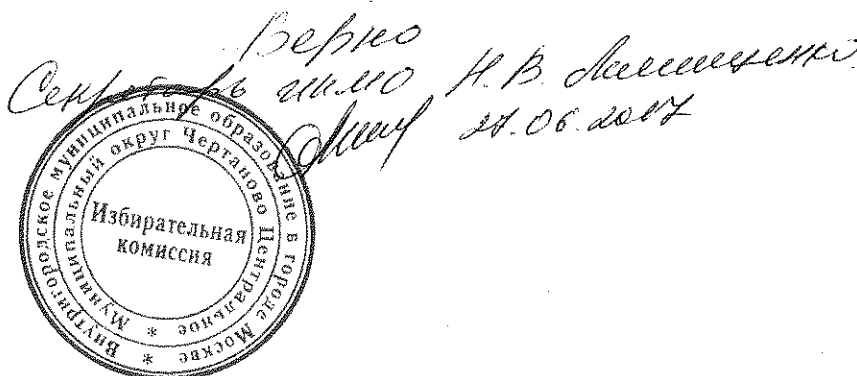 Верно
Секретарь ИКМО Н.В.
27.06.2017
Внутригородское муниципальное образование в городе Москве *
Муниципальный округ Чертаново Центральное *
Избирательная
комиссия